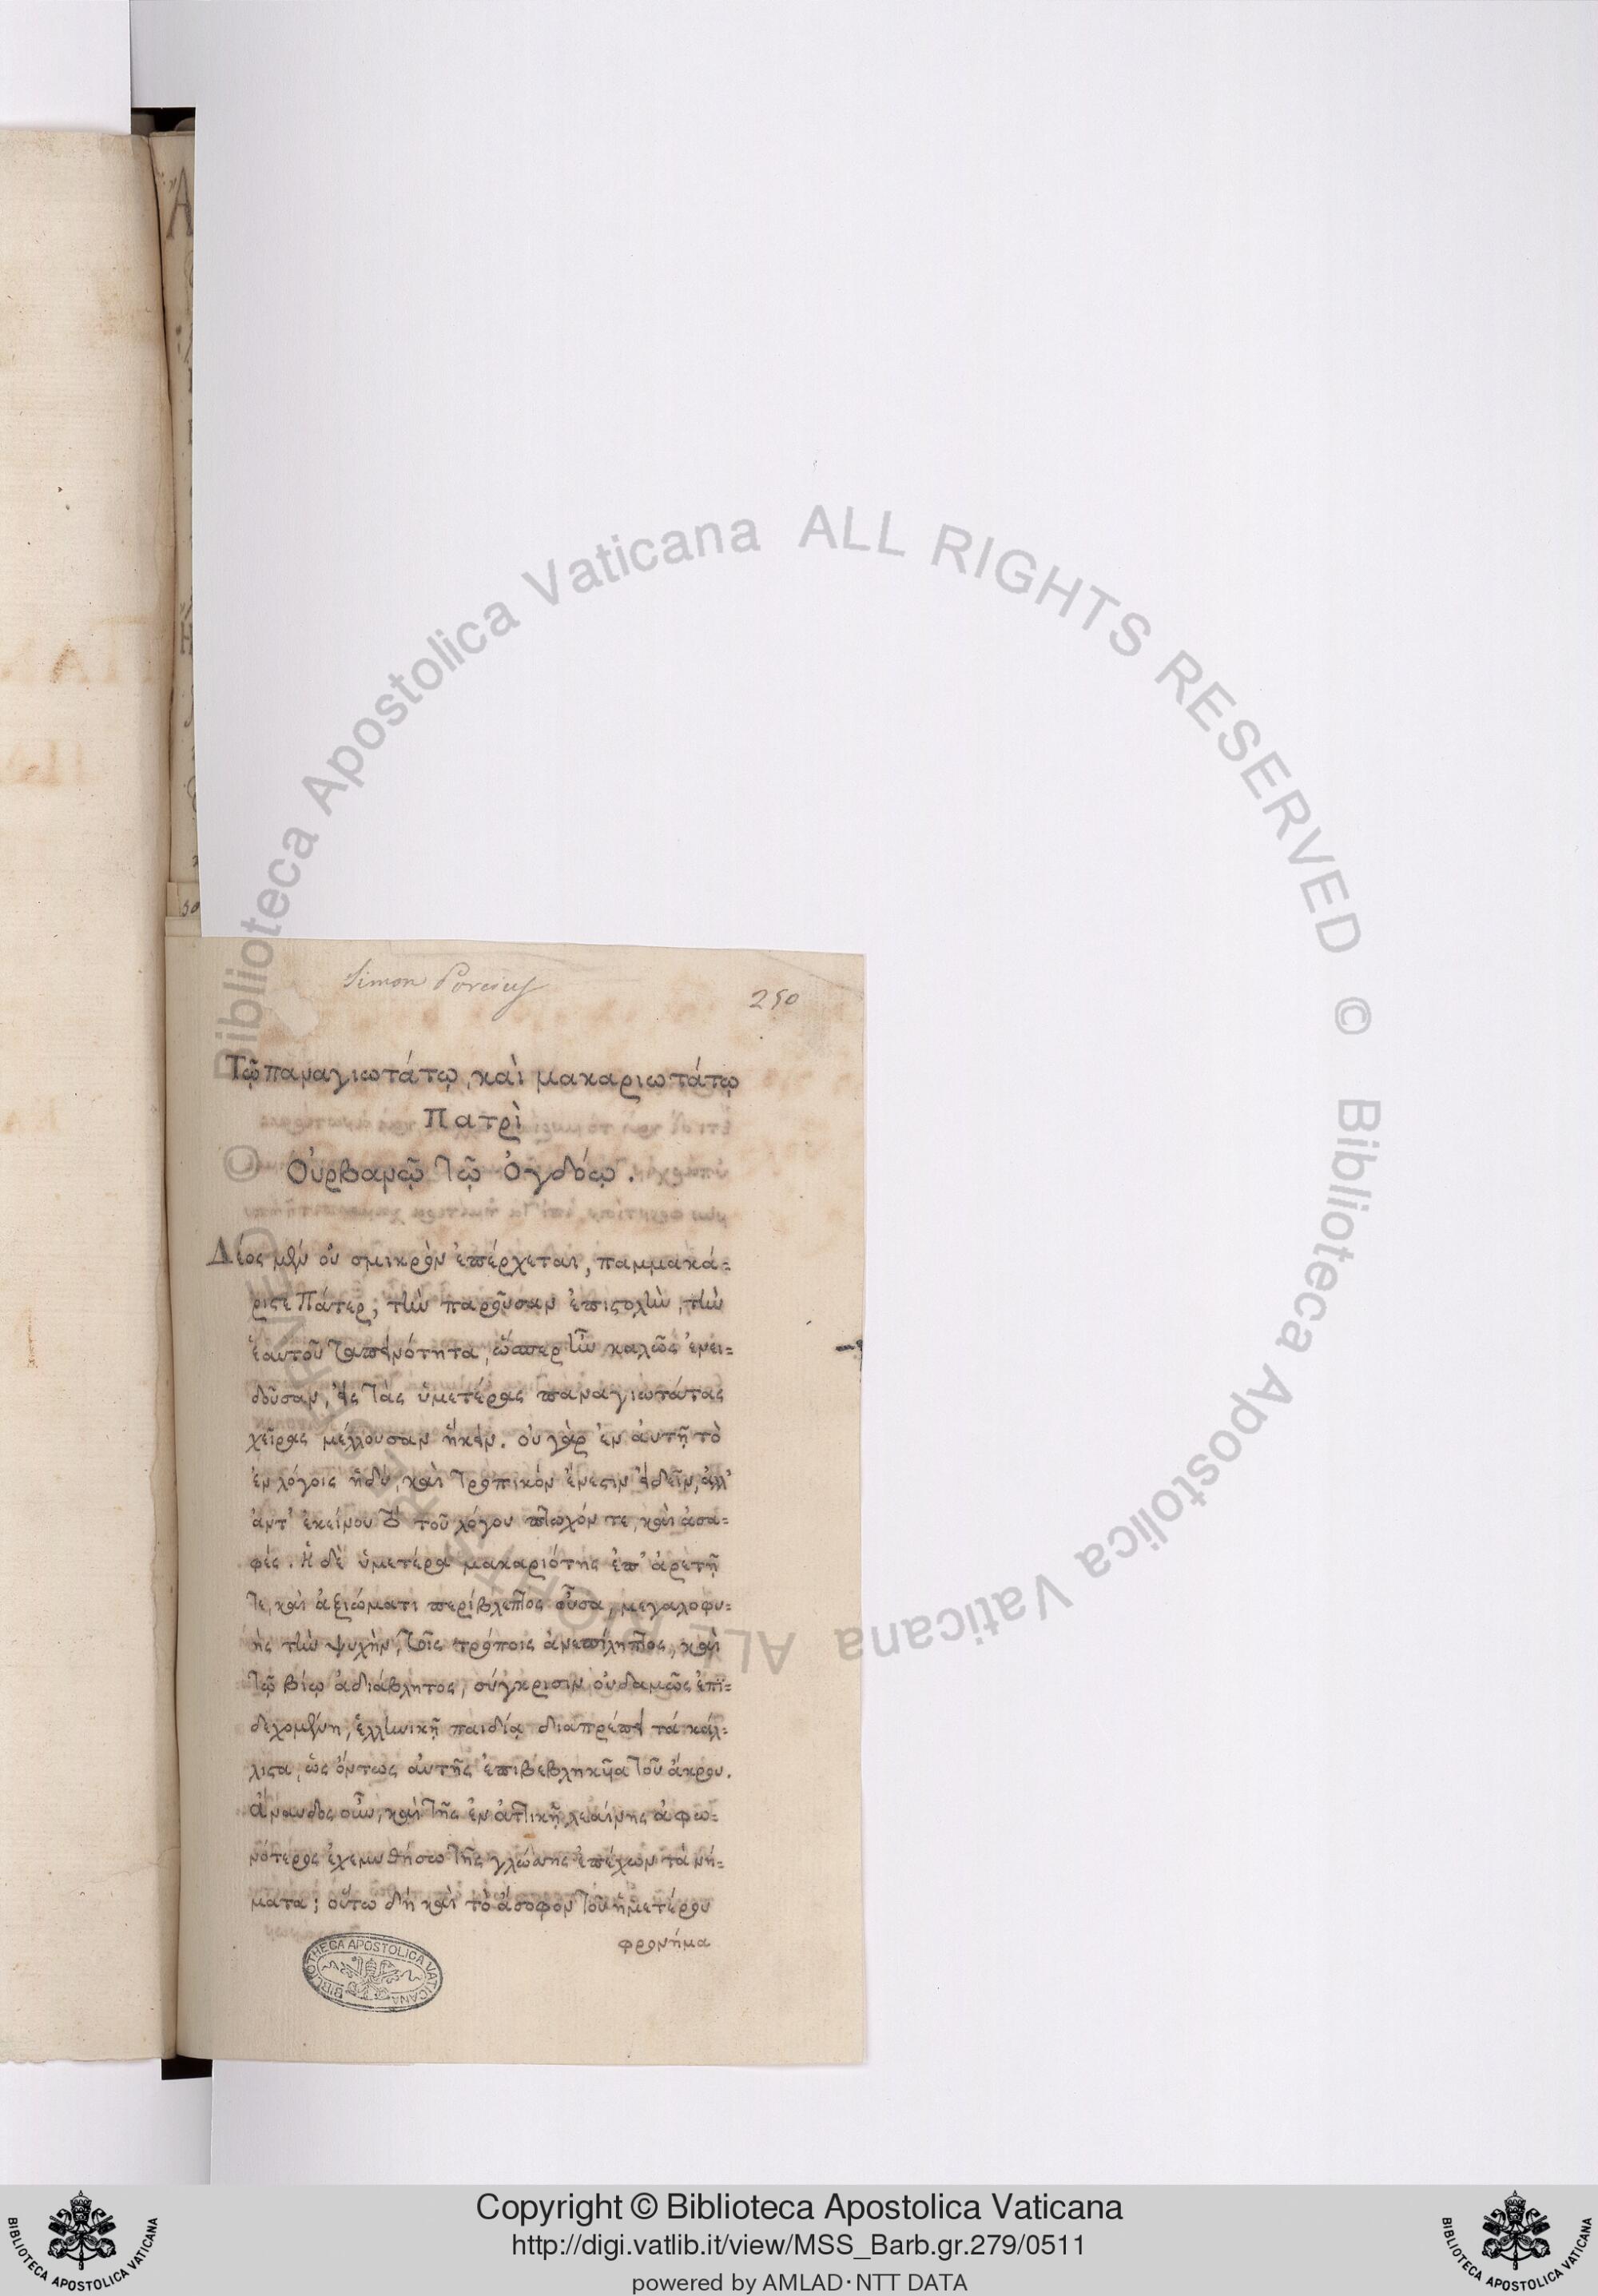 Simon Porcius
250
Τῷ παναγιωτάτῳ, καὶ μακαριωτάτῳ
Πατρὶ
Οὐρβανῷ τῷ Ὀγδόῳ.
Δέος μὲν οὐ σμικρὸν ἐπέρχεται, παμμακά=
ριστε Πάτερ, τὴν παροῦσαν ἐπιστολὴν, τὴν
ἑαυτοῦ ταπεινότητα, ὥσπερ ἦν καλῶς ἐνει=
δοῦσαν, εἰς τὰς ὑμετέρας παναγιωτάτας
χεῖρας μέλλουσαν ἥκειν. οὐ γὰρ ἐν αὐτῇ τὸ
ἐν λόγοις ἡδὺ, καὶ τροπικὸν ἔνεστιν εἰδεῖν, ἀλλ'
ἀντ' ἐκείνου τὸ τοῦ λόγου πτωχόν τε, καὶ ἀσα=
φές. Ἡ δὲ ὑμετέρα μακαριότης ἐπ' ἀρετῇ
τε, καὶ ἀξιώματι περίβλεπτος οὖσα, μεγαλοφυ=
ὴς τὴν ψυχὴν, τοῖς τρόποις ἀνεπίληπτος, καὶ
τῷ βίῳ ἀδιάβλητος, σύγκρισιν οὐδαμῶς ἐπι=
δεχομένη, ἑλληνικῇ παιδίᾳ διαπρέπει τά κάλ=
λιστα, ὡς ὄντως αὐτῆς ἐπιβεβληκυῖα τοῦ ἄκρου.
ἄναυδος οὖν, καὶ τῆς ἐν ἀττικῇ λεαίνης ἀφω=
νότερος ἐχεμυθήσω τῆς γλώττης ἐπέχων τὰ νή=
ματα; οὕτω δή καὶ τὸ ἄσοφον τοῦ ἡμετέρου
φρονήμα
BIBLIOTHECA APOSTOLICA VATICANA
© Biblioteca Apostolica Vaticana ALL RIGHTS RESERVED © Biblioteca Apostolica Vaticana ALL RIGHTS RESERVED
Copyright © Biblioteca Apostolica Vaticana
http://digi.vatlib.it/view/MSS_Barb.gr.279/0511
powered by AMLAD·NTT DATA
BIBLIOTECA APOSTOLICA VATICANA
BIBLIOTECA APOSTOLICA VATICANA